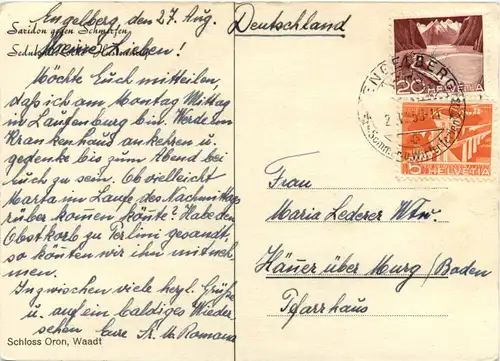 Engelberg, den 27. Aug.
Saridon gegen Schmerzen
Meine Lieben!
Möchte Euch mitteilen,
daß ich am Montag Mittag
in Laufenburg bin. Werde im
Krankenhaus ankehren u.
gedenke bis zum Abend bei
Euch zu sein. Ob vielleicht
Marta im Laufe des Nachmittags
rüber kom̄en kön̄te? Habe den
Obstkorb zu Perlini gesandt,
so kön̄ten wir ihn mitneh
men.
Inzwischen viele herzl. Grüße
u. auf ein baldiges Wieder
sehen Eure Sr. M. Romana
Schloss Oron, Waadt
Deutschland
20 HELVETIA
ENGELBERG
5 HELVETIA
Frau
Maria Lederer Wtw.
Hänner über Murg/Baden
Pfarrhaus